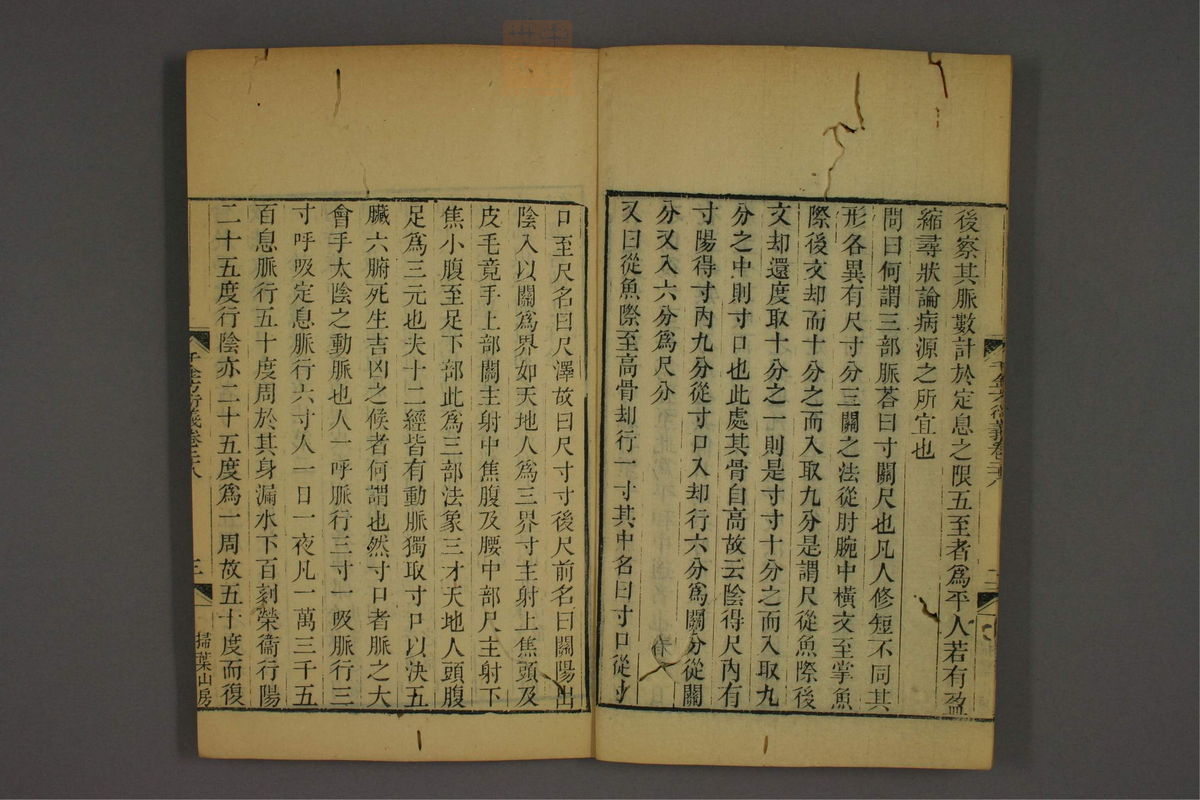 後察其脈數計於定息之限五至者爲平人若有盈
縮尋狀論病源之所宜也
問曰何謂三部脈荅曰寸關尺也凡人修短不同其
形各異有尺寸分三關之法從肘腕中橫文至掌魚
際後文却而十分之而入取九分是謂尺從魚際後
文却還度取十分之一則是寸寸十分之而入取九
分之中則寸口也此處其骨自高故云陰得尺內有
寸陽得寸內九分從寸口入却行六分爲關分從關
分又入六分爲尺分
又曰從魚際至高骨却行一寸其中名曰寸口從寸
口至尺名曰尺澤故曰尺寸寸後尺前名曰關陽出
陰入以關爲界如天地人爲三界寸主射上焦頭及
皮毛竟手上部關主射中焦腹及腰中部尺主射下
焦小腹至足下部此爲三部法象三才天地人頭腹
足爲三元也夫十二經皆有動脈獨取寸口以決五
臟六腑死生吉凶之候者何謂也然寸口者脈之大
會手太陰之動脈也人一呼脈行三寸一吸脈行三
寸呼吸定息脈行六寸人一日一夜凡一萬三千五
百息脈行五十度周於其身漏水下百刻榮衞行陽
二十五度行陰亦二十五度爲一周故五十度而復
千金方衍義卷二十八
三
掃葉山房